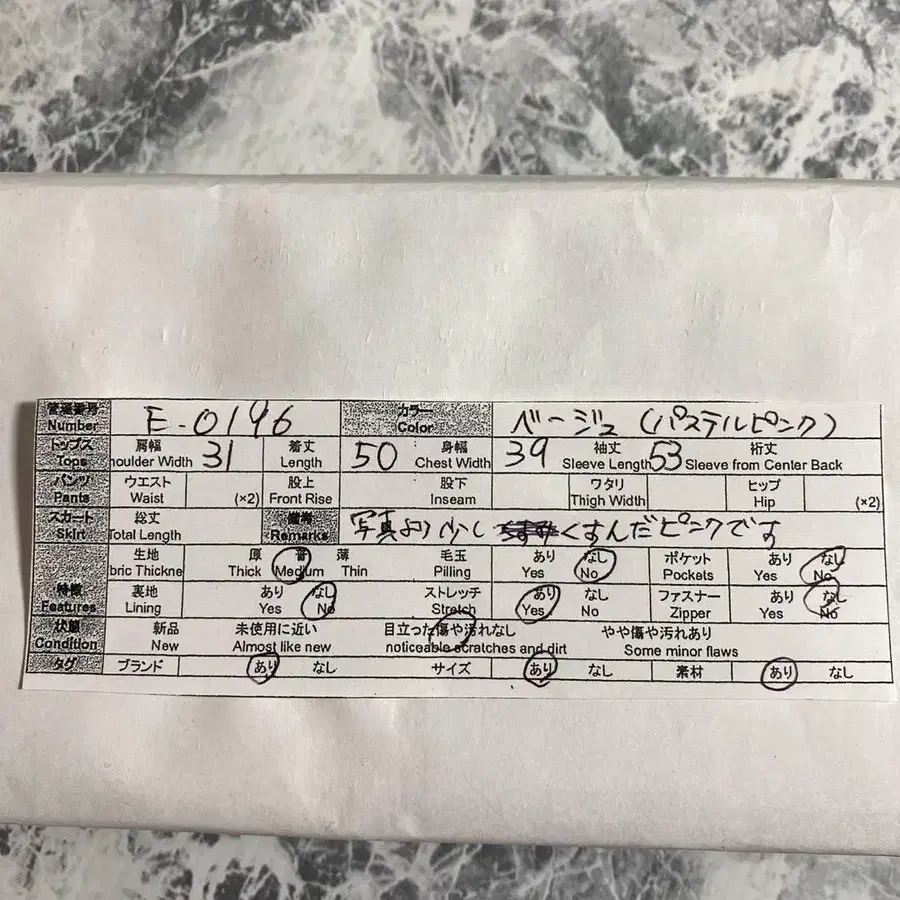 管理番号 Number E-0146 カラー Color ベージュ (パステルピンク)
トップス Tops 肩幅 houlder Width 31 着丈 Length 50 身幅 Chest Width 39 袖丈 Sleeve Length 53 裄丈 Sleeve from Center Back
パンツ Pants ウエスト Waist (×2) 股上 Front Rise 股下 Inseam ワタリ Thigh Width ヒップ Hip (×2)
スカート Skirt 総丈 Total Length 備考 Remarks 写真より少し くすんだピンクです
生地 bric Thickne 厚 Thick 普 Medium 薄 Thin 毛玉 Pilling あり Yes なし No ポケット Pockets あり Yes なし No
特徴 Features 裏地 Lining あり Yes なし No ストレッチ Stretch あり Yes なし No ファスナー Zipper あり Yes なし No
状態 Condition 新品 New 未使用に近い Almost like new 目立った傷や汚れなし noticeable scratches and dirt やや傷や汚れあり Some minor flaws
タグ ブランド あり なし サイズ あり なし 素材 あり なし